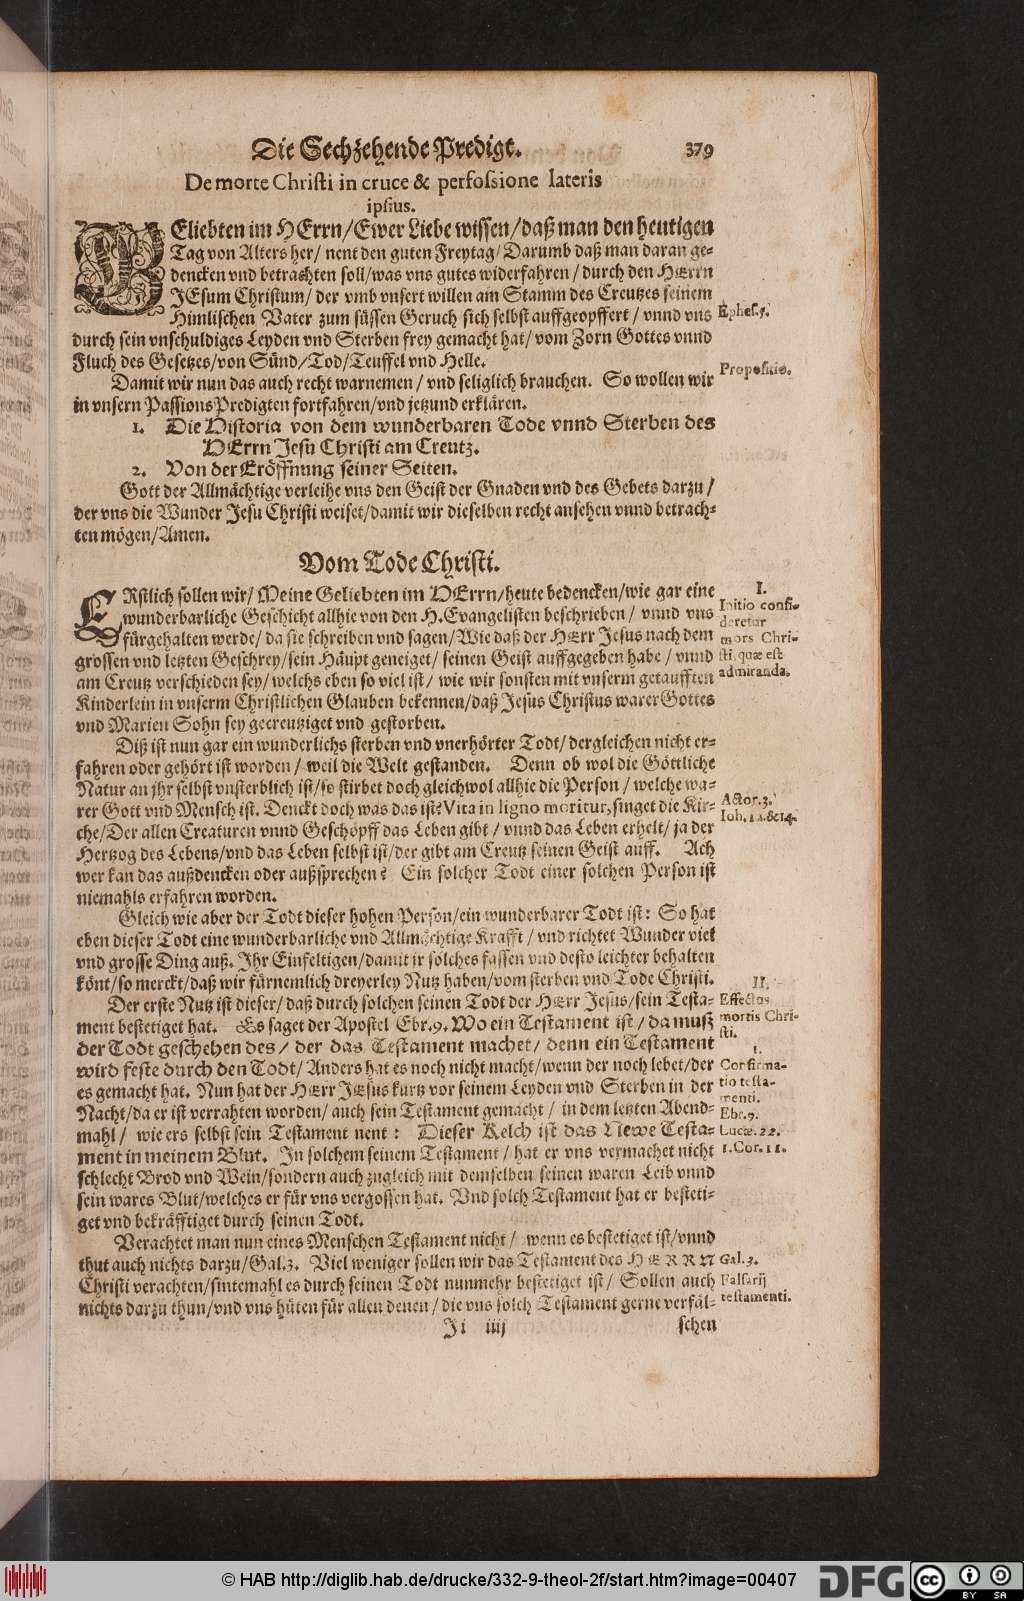 Die Sechzehende Predigt. 379
De morte Christi in cruce & perfossione lateris
ipsius.
GEliebten im HErrn/Ewer Liebe wissen/daß man den heutigen
Tag von Alters her/ nent den guten Freytag/ Darumb daß man daran ge-
dencken vnd betrachten soll/was vns gutes widerfahren/ durch den HErrn
JEsum Christum/ der vmb vnsert willen am Stamm des Creutzes seinem
Himlischen Vater zum süssen Geruch sich selbst auffgeopffert/ vnnd vns
Ephes.5.
durch sein vnschuldiges Leyden vnd Sterben frey gemacht hat/ vom Zorn Gottes vnnd
Fluch des Gesetzes/von Sünd/Tod/Teuffel vnd Helle.
Damit wir nun das auch recht warnemen/ vnd seliglich brauchen. So wollen wir
Propositio.
in vnsern PassionsPredigten fortfahren/vnd jetzund erklären.
1. Die Historia von dem wunderbaren Tode vnnd Sterben des
HErrn Jesu Christi am Creutz.
2. Von der Eröffnung seiner Seiten.
Gott der Allmächtige verleihe vns den Geist der Gnaden vnd des Gebets darzu/
der vns die Wunder Jesu Christi weiset/damit wir dieselben recht ansehen vnnd betrach-
ten mögen/Amen.
Vom Tode Christi.
ERstlich sollen wir/ Meine Geliebten im HErrn/heute bedencken/wie gar eine
wunderbarliche Geschicht allhie von den H.Evangelisten beschrieben/ vnnd vns
fürgehalten werde/ da sie schreiben vnd sagen/Wie daß der HErr Jesus nach dem
grossen vnd letzten Geschrey/sein Häupt geneiget/ seinen Geist auffgegeben habe/ vnnd
am Creutz verschieden sey/ welchs eben so viel ist/ wie wir sonsten mit vnserm getaufften
Kinderlein in vnserm Christlichen Glauben bekennen/daß Jesus Christus warer Gottes
vnd Marien Sohn sey gecreutziget vnd gestorben.
I.
Initio consi-
deretur
mors Chri-
sti, quæ est
admiranda.
Diß ist nun gar ein wunderlichs sterben vnd vnerhörter Todt/ dergleichen nicht er-
fahren oder gehört ist worden/ weil die Welt gestanden. Denn ob wol die Göttliche
Natur an jhr selbst vnsterblich ist/so stirbet doch gleichwol allhie die Person/ welche wa-
rer Gott vnd Mensch ist. Denckt doch was das ist? Vita in ligno moritur, singet die Kir-
che/Der allen Creaturen vnnd Geschöpff das Leben gibt/ vnnd das Leben erhelt/ ja der
Hertzog des Lebens/vnd das Leben selbst ist/der gibt am Creutz seinen Geist auff. Ach
wer kan das außdencken oder außsprechen? Ein solcher Todt einer solchen Person ist
niemahls erfahren worden.
Actor.3.
Ioh. 11.&14.
Gleich wie aber der Todt dieser hohen Person/ein wunderbarer Todt ist: So hat
eben dieser Todt eine wunderbarliche vnd Allmächtige Krafft/ vnd richtet Wunder viel
vnd grosse Ding auß. Ihr Einfeltigen/damit ir solches fassen vnd desto leichter behalten
könt/so merckt/daß wir fürnemlich dreyerley Nutz haben/vom sterben vnd Tode Christi.
Der erste Nutz ist dieser/ daß durch solchen seinen Todt der HErr Jesus/sein Testa-
ment bestetiget hat. Es saget der Apostel Ebr.9. Wo ein Testament ist/da muß
der Todt geschehen des/ der das Testament machet/ denn ein Testament
wird feste durch den Todt/ Anders hat es noch nicht macht/wenn der noch lebet/der
es gemacht hat. Nun hat der HErr JEsus kurtz vor seinem Leyden vnd Sterben in der
Nacht/da er ist verrahten worden/ auch sein Testament gemacht/ in dem letzten Abend-
mahl/ wie ers selbst sein Testament nent: Dieser Kelch ist das Newe Testa-
ment in meinem Blut. In solchem seinem Testament/ hat er vns vermachet nicht
schlecht Brod vnd Wein/sondern auch zugleich mit demselben seinen waren Leib vnnd
sein wares Blut/welches er für vns vergossen hat. Vnd solch Testament hat er besteti-
get vnd bekräfftiget durch seinen Todt.
II.
Effectus
mortis Chri-
sti.
1.
Confirma-
tio testa-
menti.
Ebr.9.
Lucæ.22.
1.Cor.11.
Verachtet man nun eines Menschen Testament nicht/ wenn es bestetiget ist/vnnd
thut auch nichts darzu/Gal.3. Viel weniger sollen wir das Testament des HERRN
Christi verachten/sintemahl es durch seinen Todt nunmehr bestetiget ist/ Sollen auch
nichts darzu thun/vnd vns hüten für allen denen/ die vns solch Testament gerne verfäl-
Gal.3.
Falsarij
testamenti.
Ii iiij schen
© HAB http://diglib.hab.de/drucke/332-9-theol-2f/start.htm?image=00407
DFG
cc BY SA